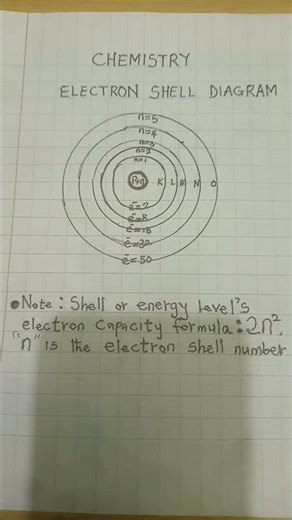 CHEMISTRY
ELECTRON SHELL DIAGRAM
n=5
n=4
n=3
n=2
n=1
K L M N O
e=2
e=8
e=18
e=32
e=50
Note: Shell or energy level's
electron capacity formula: 2n².
"n" is the electron shell number